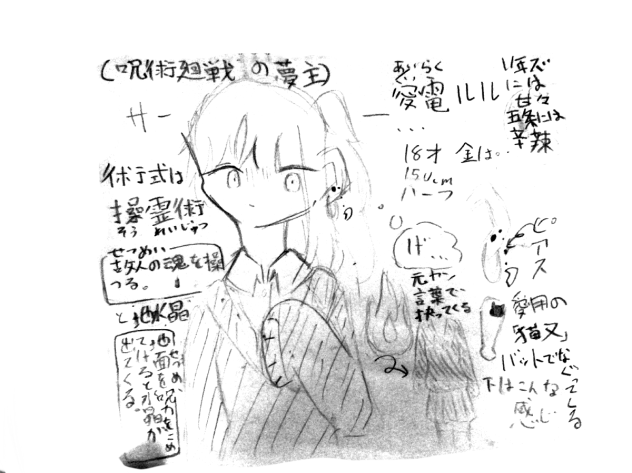 (呪術廻戦の夢主)
サー
術式は
操霊術
そうれいじゅつ
せつめい
敵人の魂を操
つる。
と地水晶
せつめい、呪力をこめ
地面を
てけると水晶が
出てくる。
あぐらく
愛電ルル
...
18才 金は。
150cm
ハーフ
1年ズ
には
甘々
五条には
辛辣
げ...
元ヤン
言葉で、
抉ってくる
ピアス
愛用の
「猫又」
バットでな
ぐってる
下はこんな
感じ